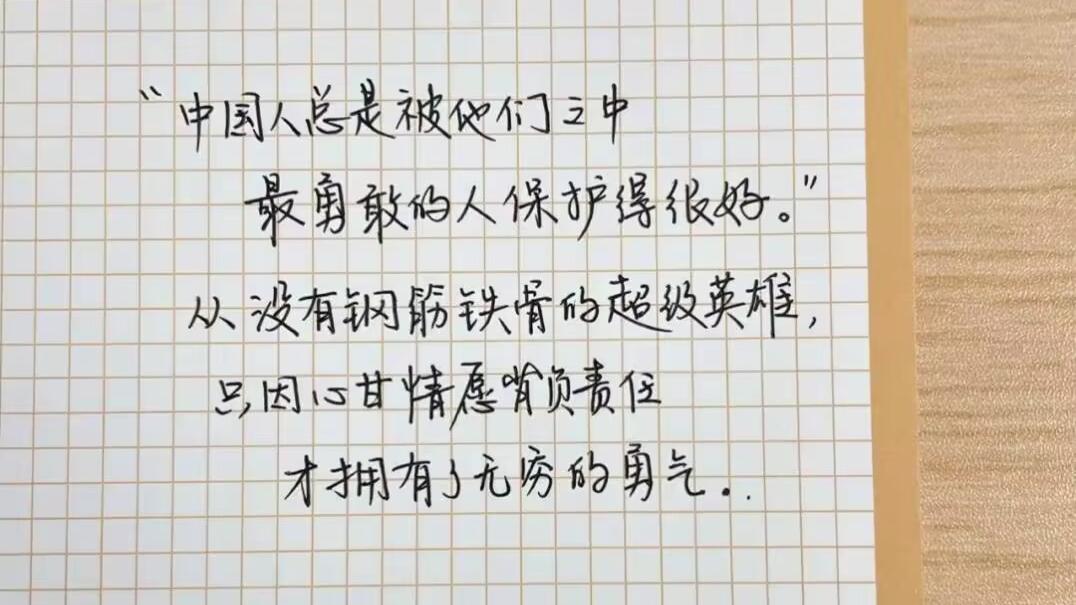 “中国人总是被他们之中
最勇敢的人保护得很好。”
从没有钢筋铁骨的超级英雄，
只因心甘情愿背负责任
才拥有了无穷的勇气..